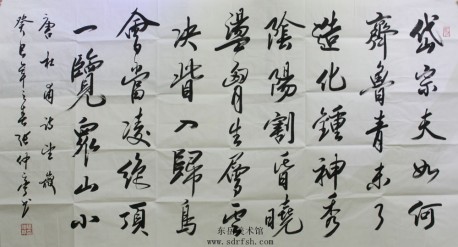 岱宗夫如何
齊魯青未了
造化鍾神秀
陰陽割昏曉
盪胸生層雲
決眥入歸鳥
會當凌絕頂
一覽眾山小
唐杜甫詩望嶽
癸巳年之春張仲亭書
东岳美术馆
www.sdrfsh.com